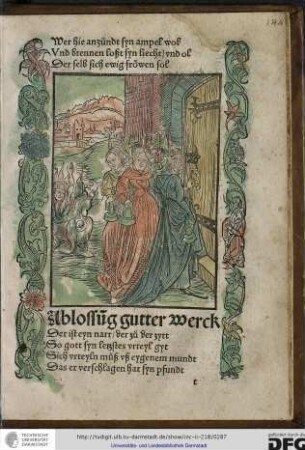 Wer hie anzündt syn ampel wol
Vnd brennen loßt syn liecht/ vnd ol
Der selb sich ewig fröwen sol
Ablossūg gutter werck
Der ist eyn narr/ der zů der zytt
So gott syn letztes vrteyl gyt
Sich vrteyln můß vß eygenem mundt
Das er verschlagen hat syn pfundt
t
TECHNISCHE
UNIVERSITÄT
DARMSTADT
http://tudigit.ulb.tu-darmstadt.de/show/inc-ii-218/0287
Universitäts- und Landesbibliothek Darmstadt
gefördert durch die
DFG